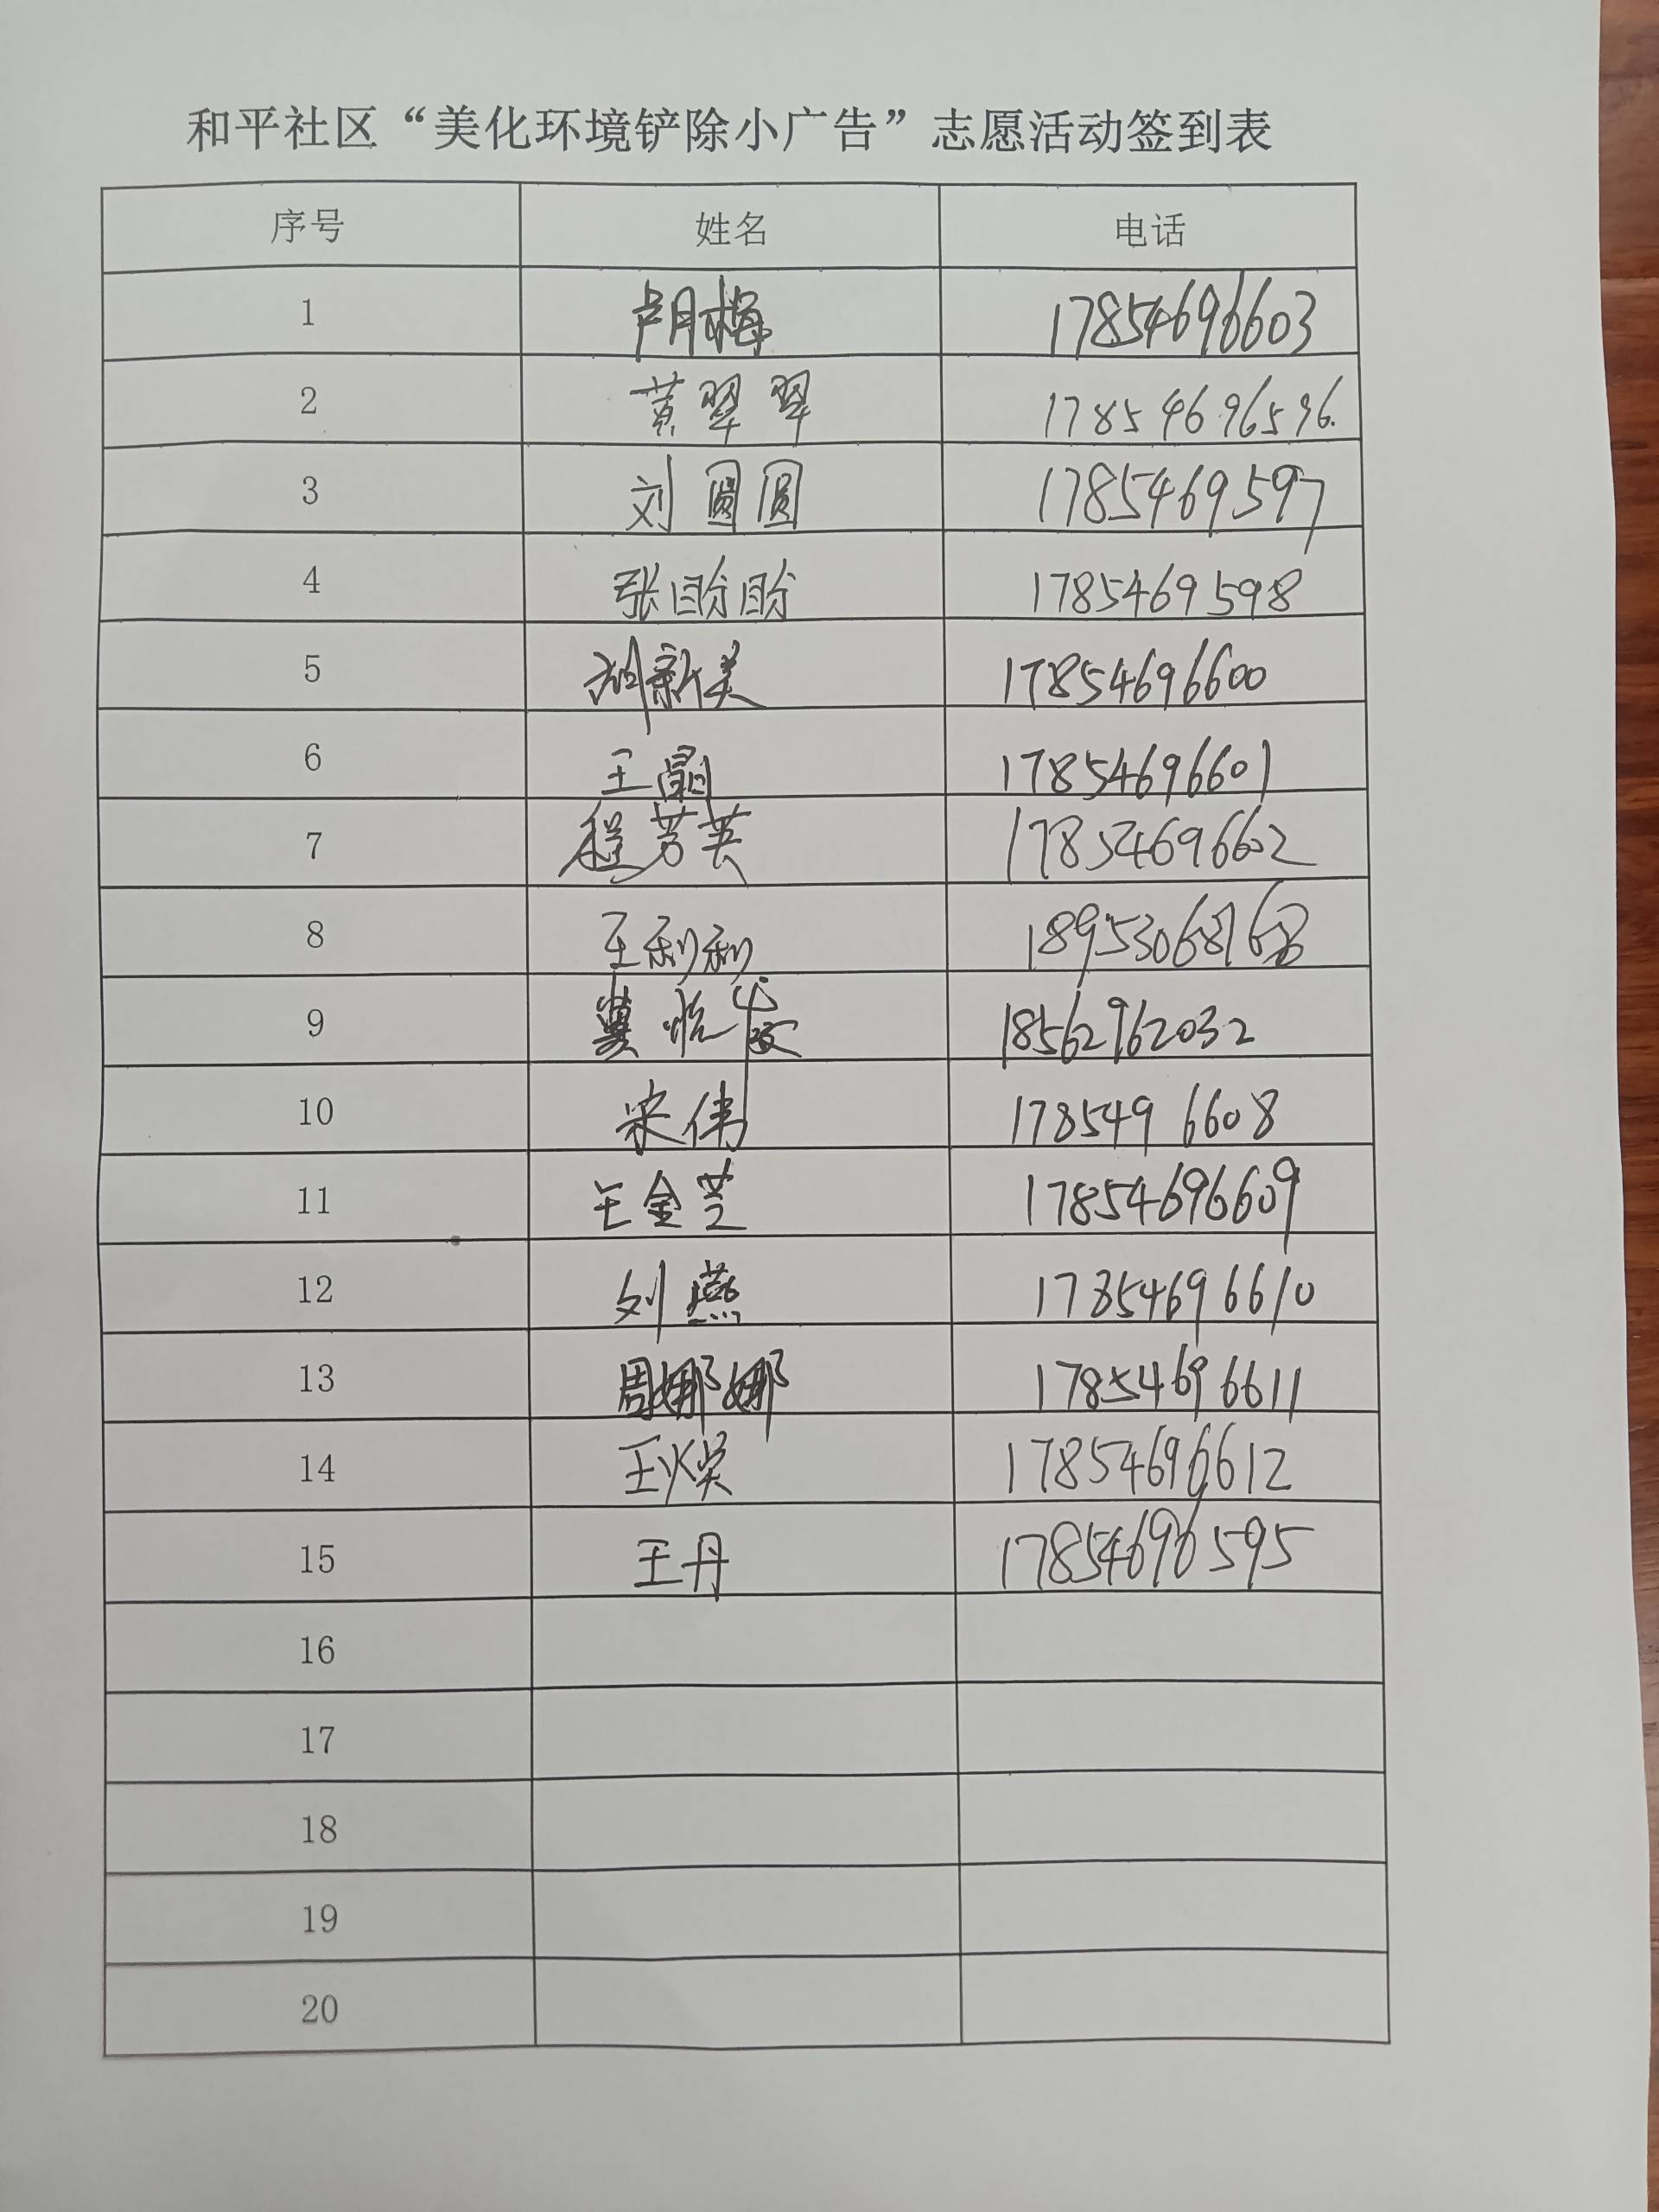 和平社区“美化环境铲除小广告”志愿活动签到表
序号 姓名 电话
1 卢月梅 17854696603
2 黄翠翠 17854696596.
3 刘圆圆 1785469597
4 张盼盼 1785469598
5 胡新美 17854696600
6 王晶 17854696601
7 程芳芳 17854696602
8 王利利 1895306816
9 冀悦 18562962032
10 宋伟 1785496608
11 王金芝 17854696609
12 刘燕 17854696610
13 周娜娜 17854696611
14 王焕 17854696612
15 王丹 17854696595
16
17
18
19
20